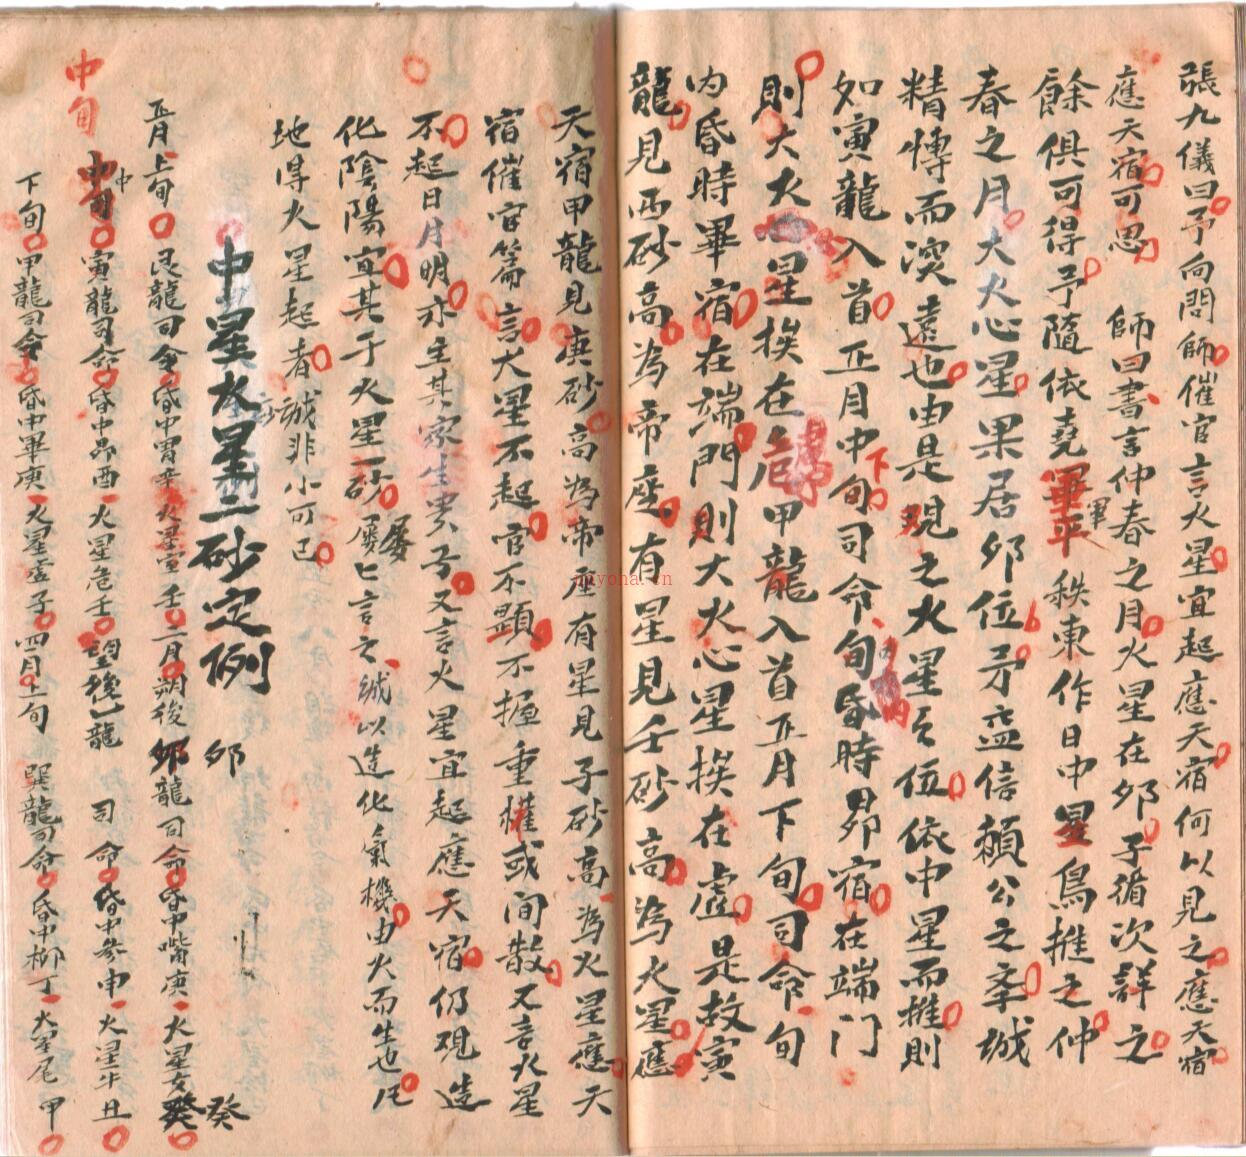 張九儀曰予向問師催官言火星宜起應天宿何以見之應天宿
應天宿可思 師曰書言仲春之月火星在夘子循次詳之
餘俱可得予隨依堯平秩東作日中星鳥推之仲
春之月大火心星果居夘位矛益信賴公之
精慱而深遠也由是現之火星之位依中星而推則
如寅龍入首正月中旬司命旬昏時昴宿在端門
則大火心星挨在危甲龍入首正月下旬司命旬
內昏時畢宿在端門則大火心星挨在虛是故寅
龍見丙砂高為帝座有星見壬砂高為火星應
天宿甲龍見庚砂高為帝座有星見子砂高為火星應天
宿催官篇言火星不起官不顯不握重權或间散又言火星
不起日月明亦主其家生貴子又言火星宜起應天宿仍現造
化陰陽宜其于火星一砂屢七言之誠以造化氣機由火而生也凡
地得火星起者誠非小可已
中星火星二砂定例
正月上旬艮龍司令昏中胃辛火星室壬二月朔後夘龍司命昏中嘴庚一火星女癸
中旬寅龍司命昏中昴酉一火星危壬望後乙龍 司命昏中參申一火星牛丑
下旬甲龍司令昏中畢庚一火星虛子四月上旬 巽龍司命昏中柳丁一火星尾甲
中旬
夘
癸
miyona.cn